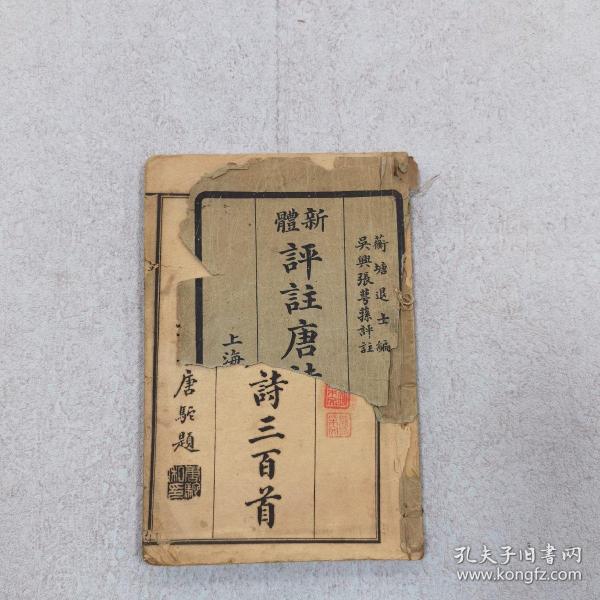 蘅塘退士編
吳興張萼蓀評註
新體
評註唐詩
上海
詩三百首
唐駝題
孔夫子旧书网
www.kongfz.com